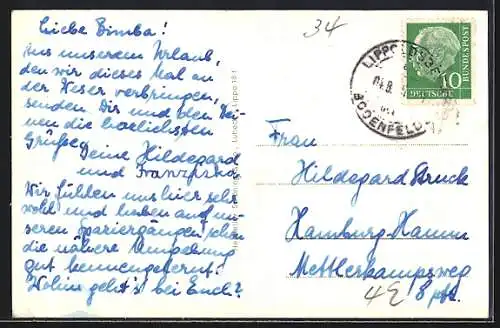 Liebe Bimba!
Aus unserem Urlaub,
den wir dieses Mal an
der Weser verbringen,
senden Dir und den Dei-
nen die herzlichsten
Grüße
Deine Hildegard
und Franzjosef
Wir fühlen uns hier sehr
wohl und haben auf un-
seren Spaziergängen schon
die nähere Umgebung
gut kennengelernt.
Wohin geht's bei Euch?
34
LIPPOLDSBERG
BODENFELDE
10
DEUTSCHE
BUNDESPOST
Frau
Hildegard Struck
Hamburg-Hamm
Mettlerkampsweg
8 ptr.
4E